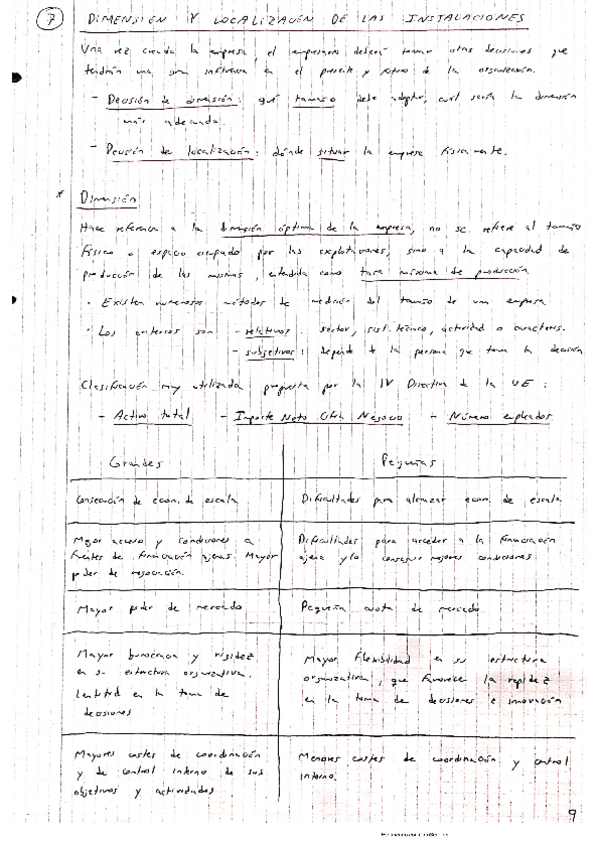 7 DIMENSIÓN Y LOCALIZACIÓN DE LAS INSTALACIONES
Una vez creada la empresa, el empresario deberá tomar otras decisiones que
tendrán una gran influencia en el presente y futuro de la organización.
- Decisión de dimensión: qué tamaño debe adoptar, cuál sería la dimensión
más adecuada.
- Decisión de localización: dónde situar la empresa físicamente.
* Dimensión
Hace referencia a la dimensión óptima de la empresa, no se refiere al tamaño
físico o espacio ocupado por las explotaciones, sino a la capacidad de
producción de las mismas, entendida como tasa máxima de producción
· Existen numerosos métodos de medición del tamaño de una empresa
· Los criterios son - relativos: sector, sist. técnico, actividad o caracters.
- subjetivos: depende de la persona que toma la decisión
Clasificación muy utilizada propuesta por la IV Directiva de la UE:
- Activo total - Importe Neto Cifra Negocio - Número empleados
Grandes Pequeñas
Consecución de econ. de escala Dificultades para alcanzar econ. de escala
Mejor acceso y condiciones a Dificultades para acceder a la financiación
fuentes de financiación ajenas. Mayor ajena y/o conseguir mejores condiciones
poder de negociación.
Mayor poder de mercado Pequeña cuota de mercado
Mayor burocracia y rigidez Mayor flexibilidad en su estructura
en su estructura organizativa. organizativa, que favorece la rapidez
Lentitud en la toma de en la toma de decisiones e innovación
decisiones
Mayores costes de coordinación Menores costes de coordinación y control
y de control interno de sus interno.
objetivos y actividades
9